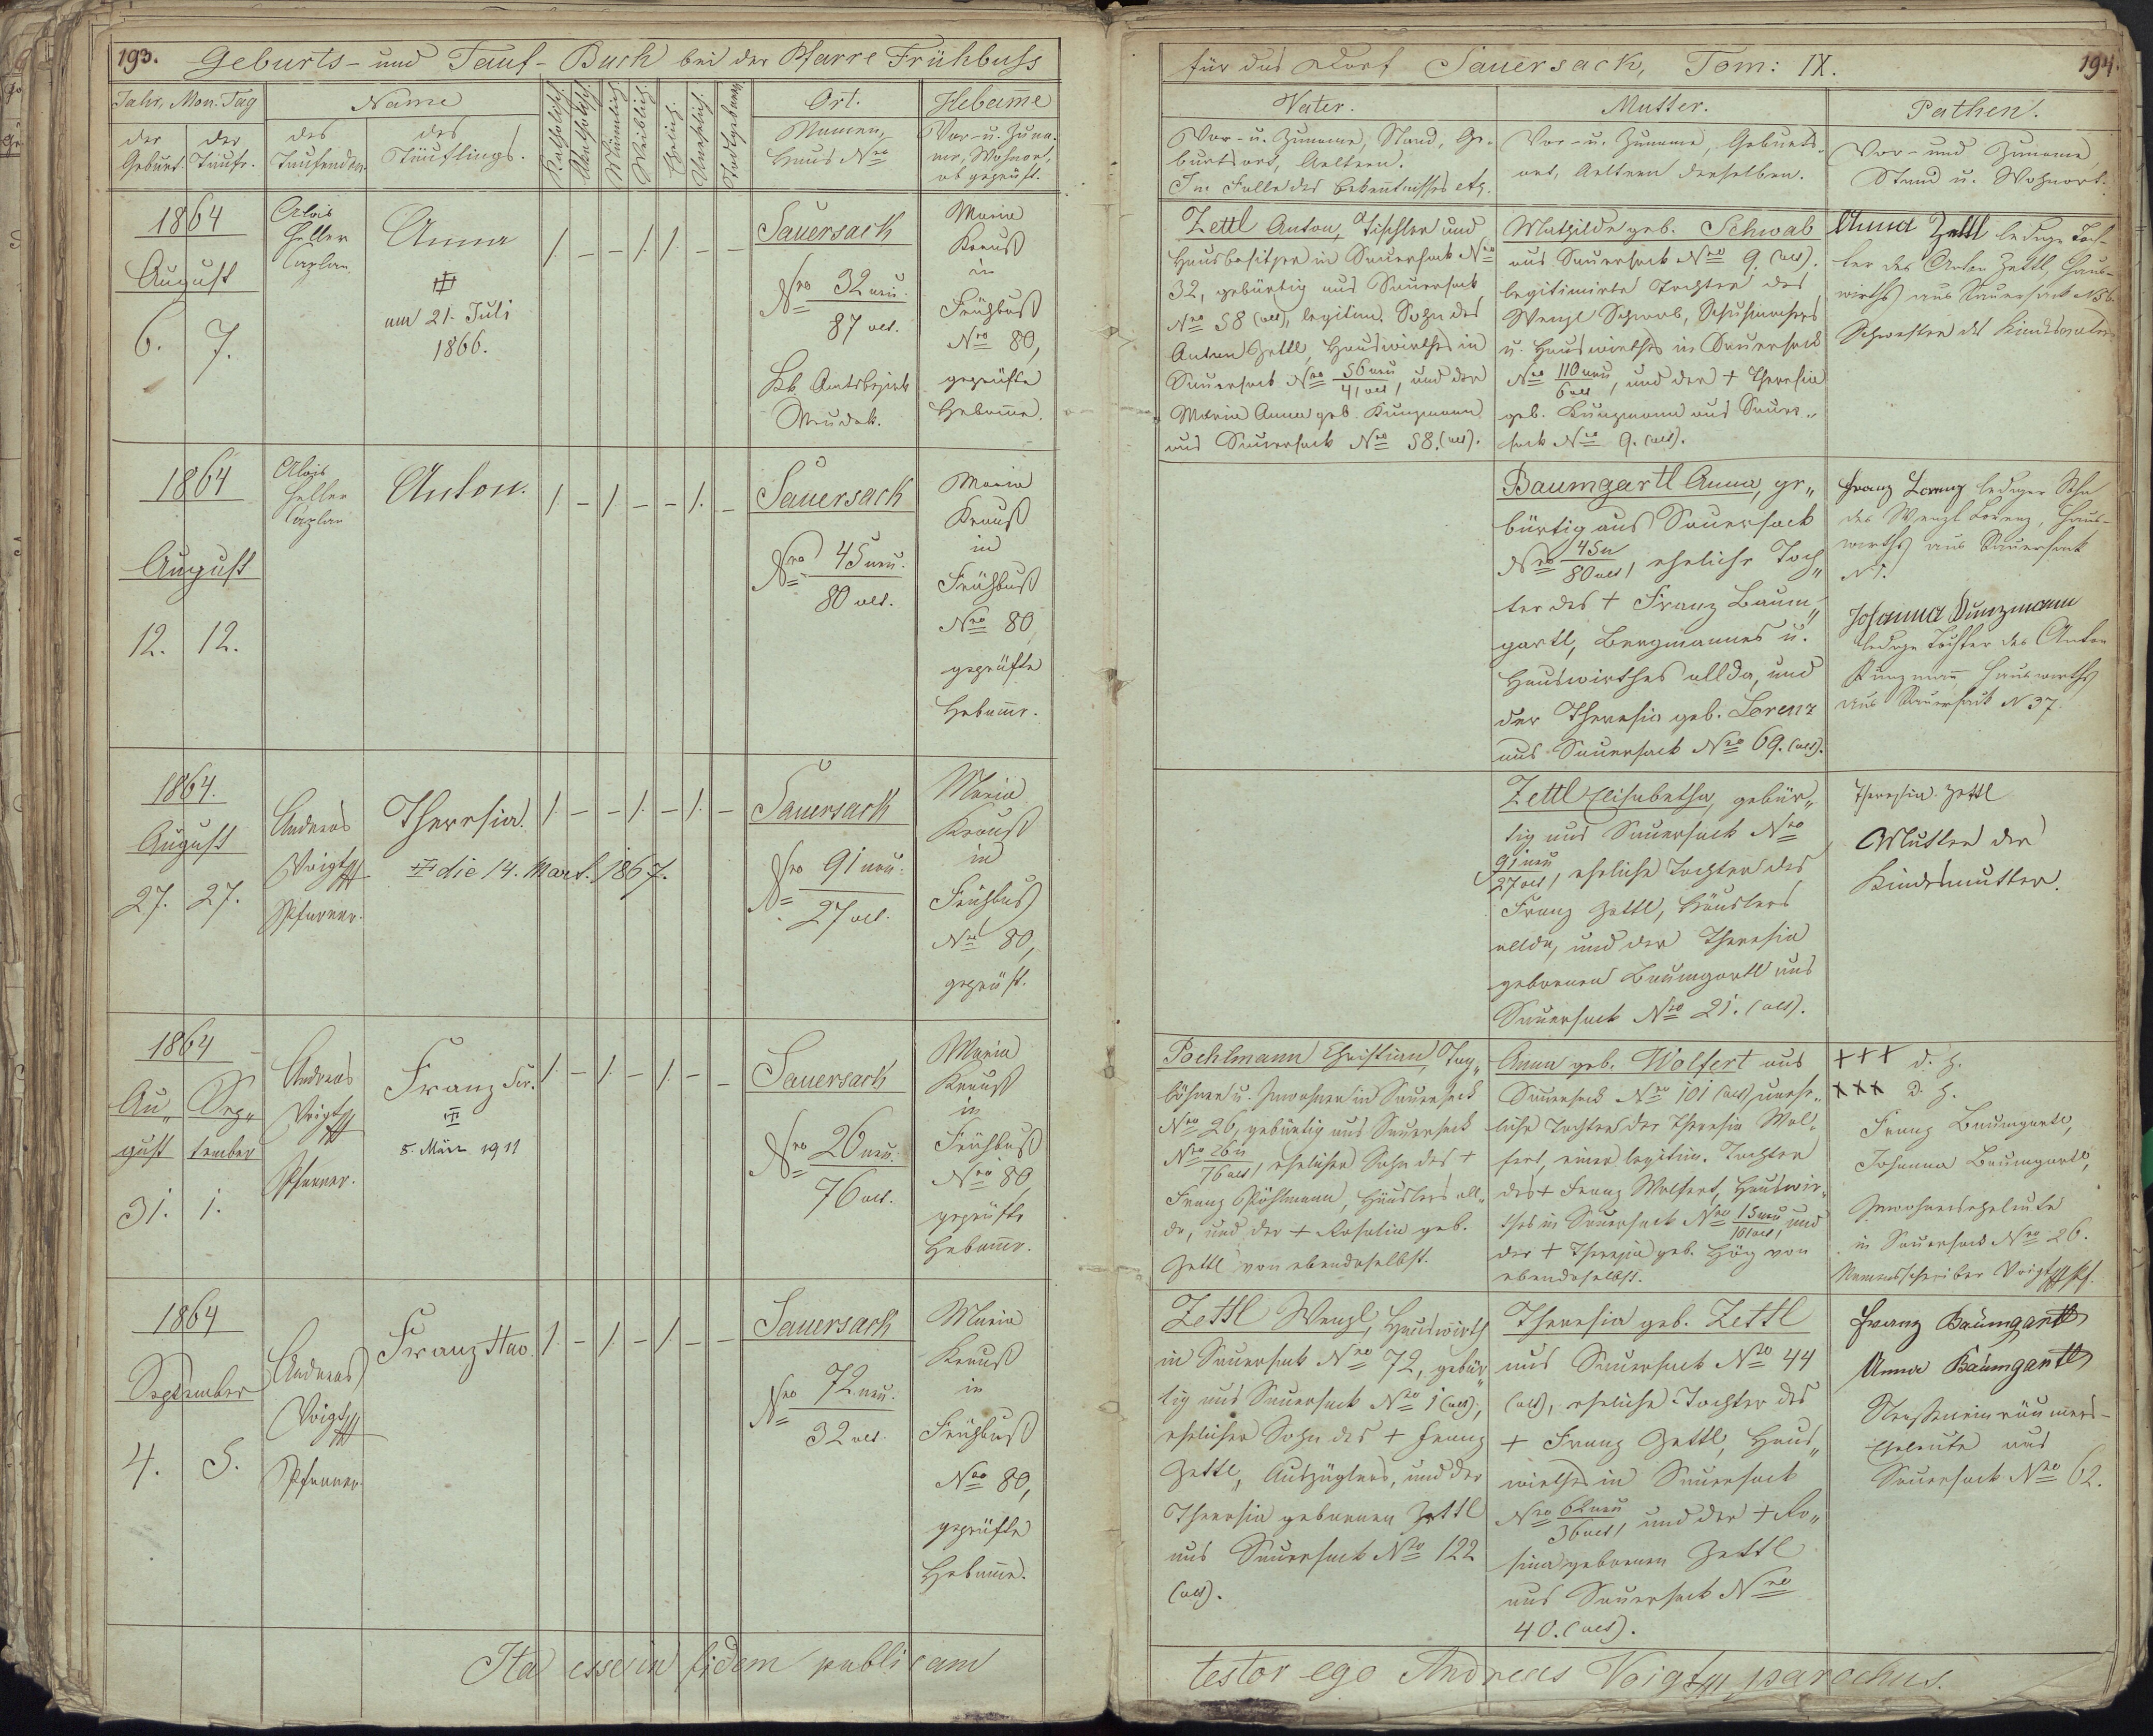 193. Geburts- und Tauf-Buch bei der Pfarre Frühbuss
Jahr, Mon. Tag
der Geburt.
der Taufe.
Name
des Taufenden.
des Täuflings.
Katholisch.
Männlich.
Weiblich.
Ehelich.
Unehlich.
Todtgeburt.
Ort.
Namen,
Haus Nro
Hebam̄e
Vor- u. Zuna-
me, Wohnort,
ob geprüft.
1864
August
6. 7.
Alois
Heller
Caplan.
Anna
am 21. Juli
1866.
/. – – /. /. – –
Sauersack
Nro 32 neu.
87 alt.
Amtsbezirk
Neudek.
Maria
Krauß
in
Frühbuß
Nro 80,
geprüfte
Hebam̄e.
1864
August
12. 12.
Alois
Heller
Caplan
Anton.
/. – /. – – /. –
Sauersack
Nro 45 neu.
80 alt.
Maria
Krauß
in
Frühbuß
Nro 80
geprüfte
Hebam̄e.
1864.
August
27. 27.
Andreas
Voigt
Pfarrer.
Theresia.
die 14. Mart. 1867.
/. – – /. – /. –
Sauersack
Nro 91 neu.
27 alt.
Maria
Krauß
in
Frühbuß
Nro 80,
geprüft.
1864
Au„ Sep„
gust tember
31. 1.
Andreas
Voigt
Pfarrer.
Franz Ser.
5. März 1911
/. – /. – /. – –
Sauersack
Nro 26 neu.
76 alt.
Maria
Krauß
in
Frühbuß
Nro 80,
geprüfte
Hebam̄e.
1864
September
4. 5.
Andreas
Voigt
Pfarrer
Franz
/. – /. – /. – –
Sauersack
Nro 72 neu.
32 alt.
Maria
Krauß
in
Frühbuß
Nro 80,
geprüfte
Hebam̄e.
Ita esse in fidem publicam
für das Dorf Sauersack, Tom: IX. 194.
Vater.
Vor- u. Zuname, Stand, Ge-
burtsort, Aeltern.
Im Falle des Bekenntnisses etz.
Mutter.
Vor- u. Zuname, Geburts-
ort, Aeltern derselben.
Pathen.
Vor- und Zuname,
Stand u. Wohnort.
Zettl Anton, Tischler und
Hausbesitzer in Sauersack Nro
32, gebürtig aus Sauersack
Nro 58 (alt), legitim. Sohn des
Anton Zettl, Hauswirthes in
Sauersack Nro 56 neu / 41 alt, und der
Maria Anna geb. Kunzmann
aus Sauersack Nro 58. (alt).
Mathilde geb. Schwab
aus Sauersack Nro 9. (alt).
legitimirte Tochter des
Wenzl Schwab, Schuhmachers
u. Hauswirthes in Sauersack
Nro 110 neu / 6 alt, und der + Theresia
geb. Kunzmann aus Sauer„
sack Nro 9. (alt).
Anna Zettl ledige Toch-
ter des Anton Zettl, Haus-
wirths aus Sauersack N 56
Schwester des Kindsvaters
Baumgartl Anna, ge„
bürtig aus Sauersack
Nro 45 n / 80 alt, eheliche Toch„
ter des + Franz Baum„
gartl, Bergmannes u.
Hauswirthes allda, und
der Theresia geb. Lorenz
aus Sauersack Nro 69. (alt).
Franz Lorenz lediger Sohn
des Wenzl Lorenz, Haus-
wirths aus Sauersack
N 1.
Johanna Kunzmann
ledige Tochter des Anton
Kunzman̄ Hauswirths
aus Sauersack N 37.
Zettl Elisabetha, gebür„
tig aus Sauersack Nro
91 neu / 27 alt, eheliche Tochter des
Franz Zettl, Häuslers
allda, und der Theresia
gebornen Baumgartl aus
Sauersack Nro 21. (alt).
Theresia Zettl
Mutter der
Kindesmutter.
Pochlmann Christian, Tag„
löhner u. Inwohner in Sauersack
Nro 26, gebürtig aus Sauersack
Nro 26 n / 76 alt, ehelicher Sohn des +
Franz Pöhlmann, Häuslers all„
da, und der + Rosalia geb.
Zettl von ebendaselbst.
Anna geb. Wolfert aus
Sauersack Nro 101 (alt) unehe„
liche Tochter der Theresia Wol„
fert, einer legitim. Tochter
des + Franz Wolfert, Hauswir„
thes in Sauersack Nro 15 neu / 101 alt, und
der + Theresia geb. Hög von
ebendaselbst.
+++ d. H.
+++ d. H.
Franz Baumgartl,
Johanna Baumgartl,
Inwohnerseheleute
in Sauersack Nro 26.
Namensschreiber Voigt Pf.
Zettl Wenzl, Hauswirth
in Sauersack Nro 72, gebür„
tig aus Sauersack Nro 1 (alt),
ehelicher Sohn des + Franz
Zettl, Auszüglers, und der
Theresia gebornen Zettl
aus Sauersack Nro 122
(alt).
Theresia geb. Zettl
aus Sauersack Nro 44
(alt), eheliche Tochter des
+ Franz Zettl, Haus„
wirthes in Sauersack
Nro 62 neu / 36 alt, und der + Ro„
sina gebornen Zettl
aus Sauersack Nro
40. (alt).
Franz Baumgartl
Anna Baumgartl
Straßeneinräumers-
Eheleute aus
Sauersack Nro 62.
testor ego Andreas Voigt, parochus.